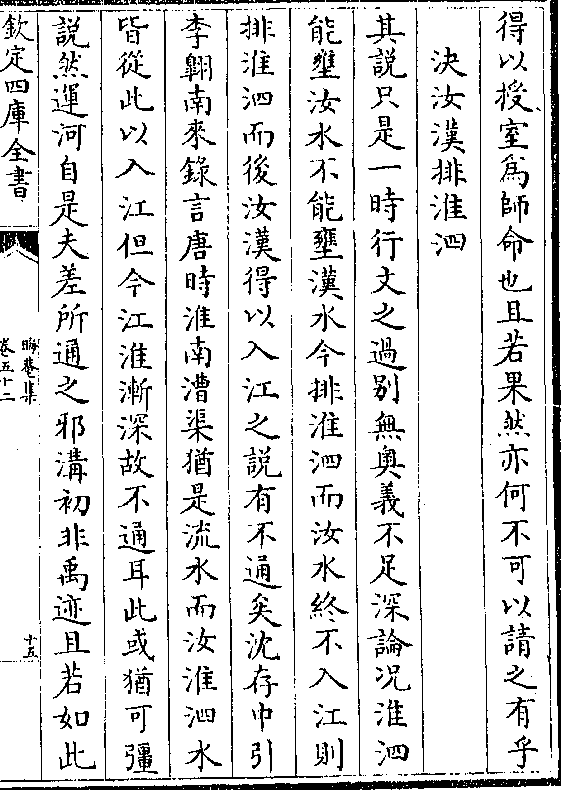 得以授室為師命也且若果然亦何不可以請之有乎
決汝漢排淮泗
其說只是一時行文之過别無奥義不足深論况淮泗
能壅汝水不能壅漢水今排淮泗而汝水終不入江則
排淮泗而後汝漢得以入江之說有不通矣沈存中引
李翺南來錄言唐時淮南漕渠猶是流水而汝淮泗水
皆從此以入江但今江淮漸深故不通耳此或猶可彊
說然運河自是夫差所通之邪溝初非禹迹且若如此
欽定四庫全書
晦菴集
卷五十二
十五